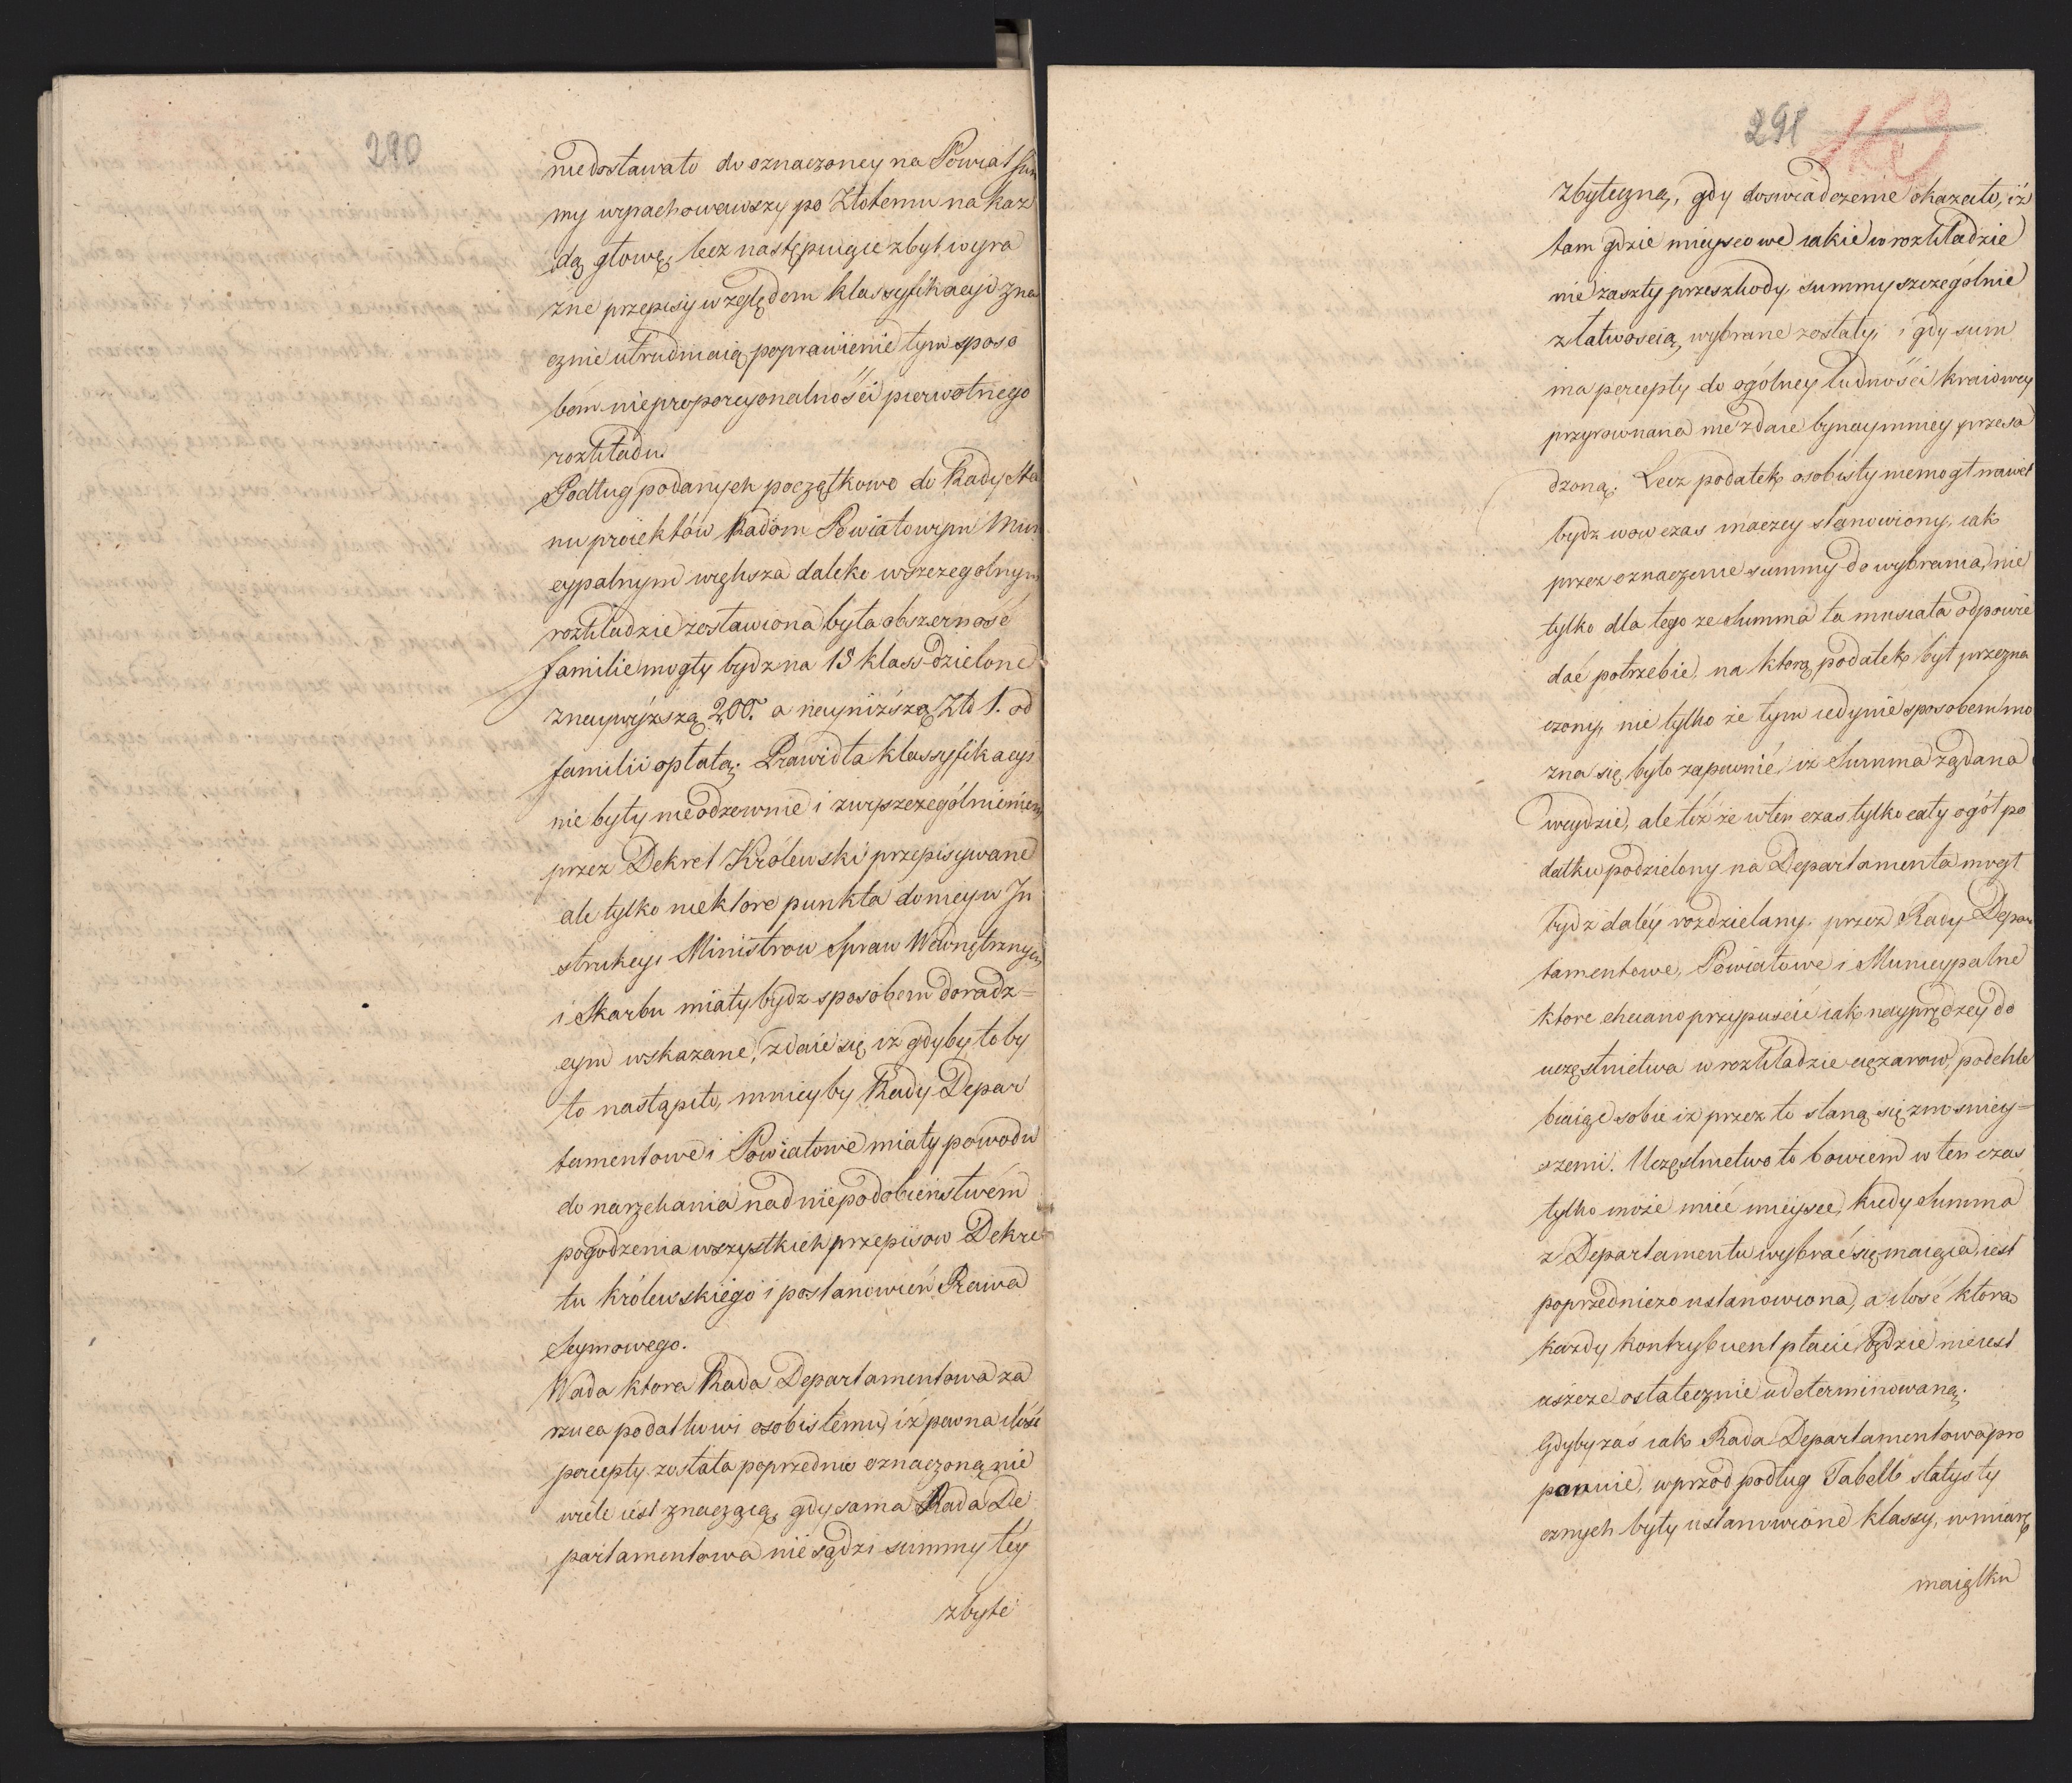 290
niedostawało do oznaczoney na Powiat Sum
my wypachowawszy po Złotemu na kaz
dą głowę, lecz następuiące zbyt wyra
źne przepisy względem klassyfikacyi zna
cznie utrudniaią poprawienie tym sposo
bem nieproporcyonalności pierwotnego
rozkładu.
Podług podanych początkowo do Rady Sta
nu proiektów Radom Powiatowym Muni
cypalnym większa daleko w szczegolnym
rozkładzie zostawiona była obszerność
familie mogły bydz na 18 klass dzielone
z naywyższą 200. a nayniższą Zło 1. od
familii opłatą. Prawidła klassyfikacyi
nie były nieodzownie i z wyszczególnieniem
przez Dekret Królewski przepisywane
ale tylko niektore punkta do niey w In
strukcyi Ministrow Spraw Wewnętrznych
i Skarbu miały bydz sposobem doradz=
cym wskazane, zdaie się iz gdyby to by
to nastąpiło, mniey by Rady Depar
tamentowe i Powiatowe miały powodu
do narzekania nad niepodobieństwem
pogodzenia wszystkich przepisow Dekre
tu królewskiego i postanowień Prawa
Seymowego.
Wada ktora Rada Departamentowa za
rzuca podatkowi osobistemu, iż pewna ilość
percepty została poprzednio oznaczoną nie
wiele iest znaczącą, gdy sama Rada De
partamentowa nie sądzi summy téy
zbyte
291
163
zbyteczną, gdy doswiadczenie okazało, iż
tam gdzie mieyscowe iakie w rozkładzie
nie zaszły przeszkody, summy szczególnie
z łatwoscią wybrane zostały, i gdy sum
ma percepty do ogólney ludności kraiowey
przyrownana nie zdaie bynaymniey przesa
dzoną. Lecz podatek osobisty niemogł nawet
bydz wowczas inaczey stanowiony, iak
przez oznaczenie summy do wybrania, nie
tylko dla tego ze Summa ta musiała odpowie
dać potrzebie, na ktorą podatek był przezna
czony, nie tylko że tym iedynie sposobem mo
zna się było zapewnić, iż Summa żądana
weydzie, ale też że w ten czas tylko cały ogół po
datku podzielony na Departamenta mogł
bydz daléy rozdzielany przez Rady Depar
tamentowe, Powiatowe i Municypalne
ktore chciano przypuścić iak nayprędzey do
uczęstnictwa w rozkładzie cięzarow, pochle
biaiąc sobie iz przez to staną się znosniey=
szemi. Uczęstnictwo to bowiem w ten czas
tylko może mieć mieysce, kiedy Summa
z Departamentu wybrać się maiąca, iest
poprzedniczo ustanowiona, a ilość ktora
kazdy kontrybuent płacić będzie nieiest
ieszcze ostatecznie udeterminowaną.
Gdyby zaś iak Rada Departamentowa pro
ponuie, wprzod podług Tabelli statysty
cznych były ustanowione klassy, w miarę
maiątku